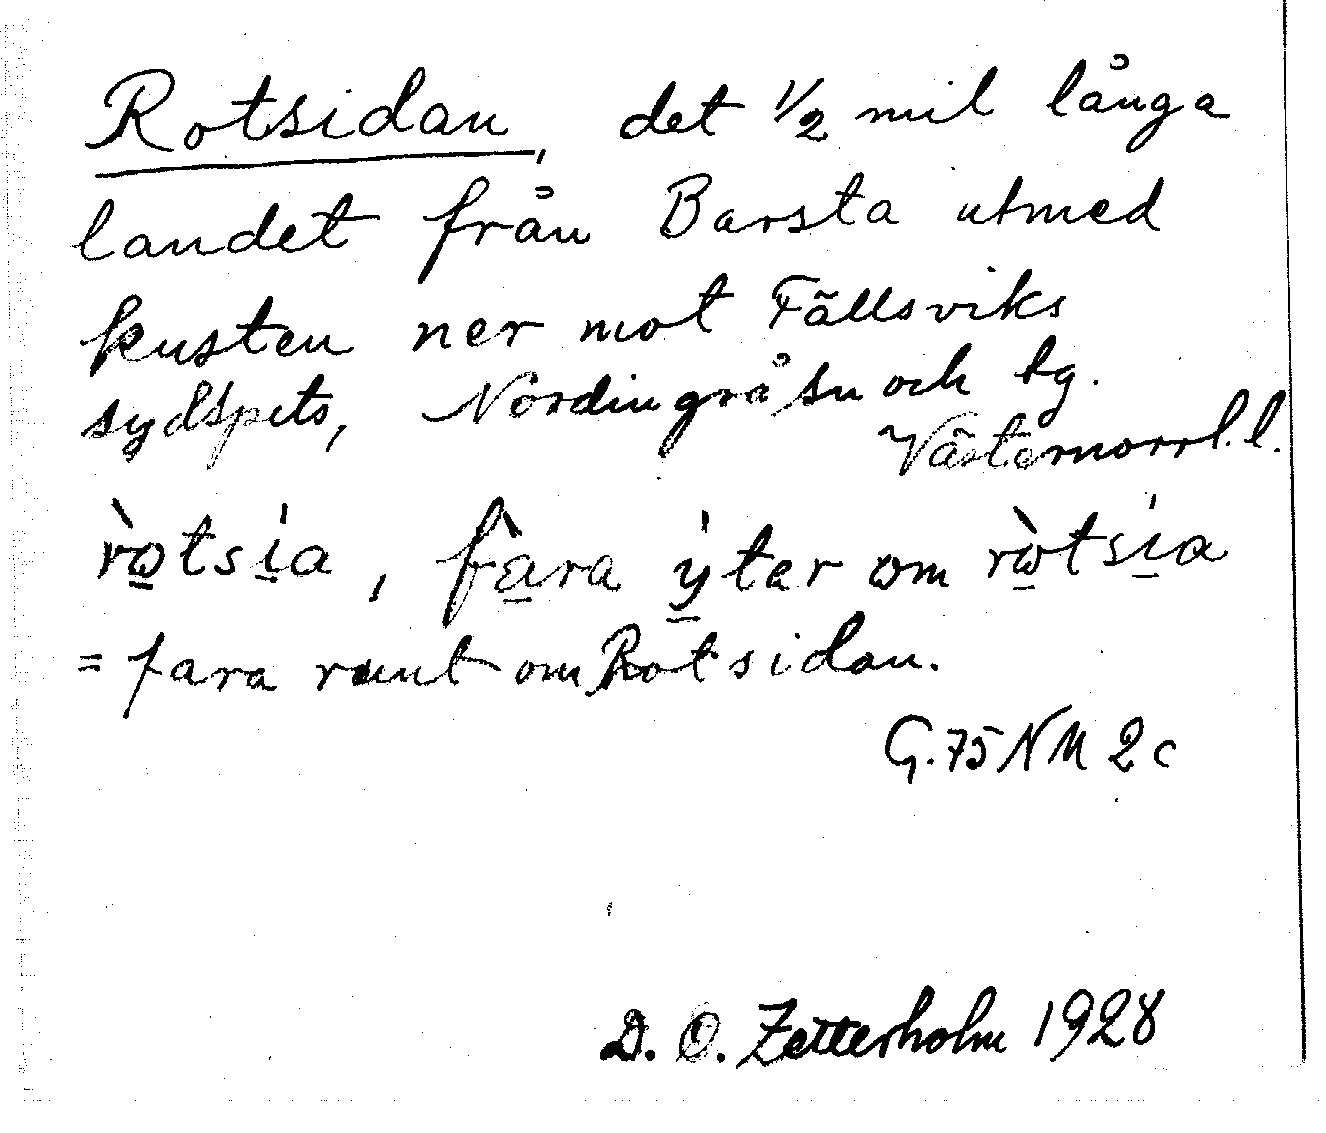 Rotsidan, det 1/2 mil långa
landet från Barsta utmed
kusten ner mot Fällsviks
sydspets, Nordingrå sn och tg.
Västernorrl. l.
rò̱tsi̱a, fà̱ra y̱̍ter om rò̱tsi̱a
= fara runt om Rotsidan.
G.75 NM 2c
D. O. Zetterholm 1928